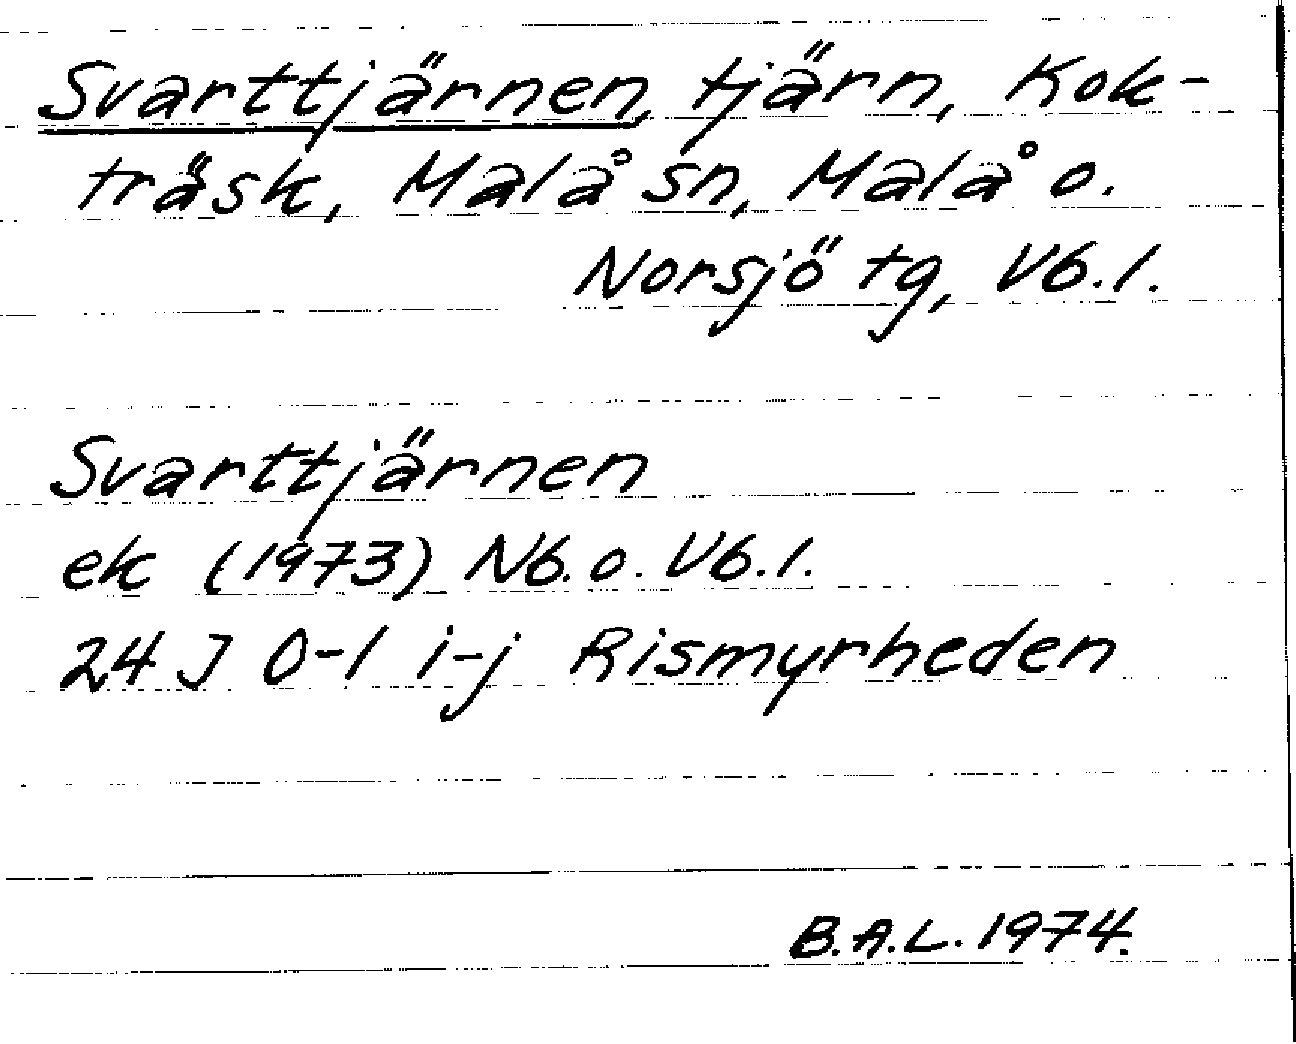 Svarttjärnen, tjärn, Kok-
träsk, Malå sn, Malå o.
Norsjö tg, Vb.l.
Svarttjärnen
ek (1973) Nb. o. Vb.l.
24 J 0-1 i-j Rismyrheden
B.A.L. 1974.